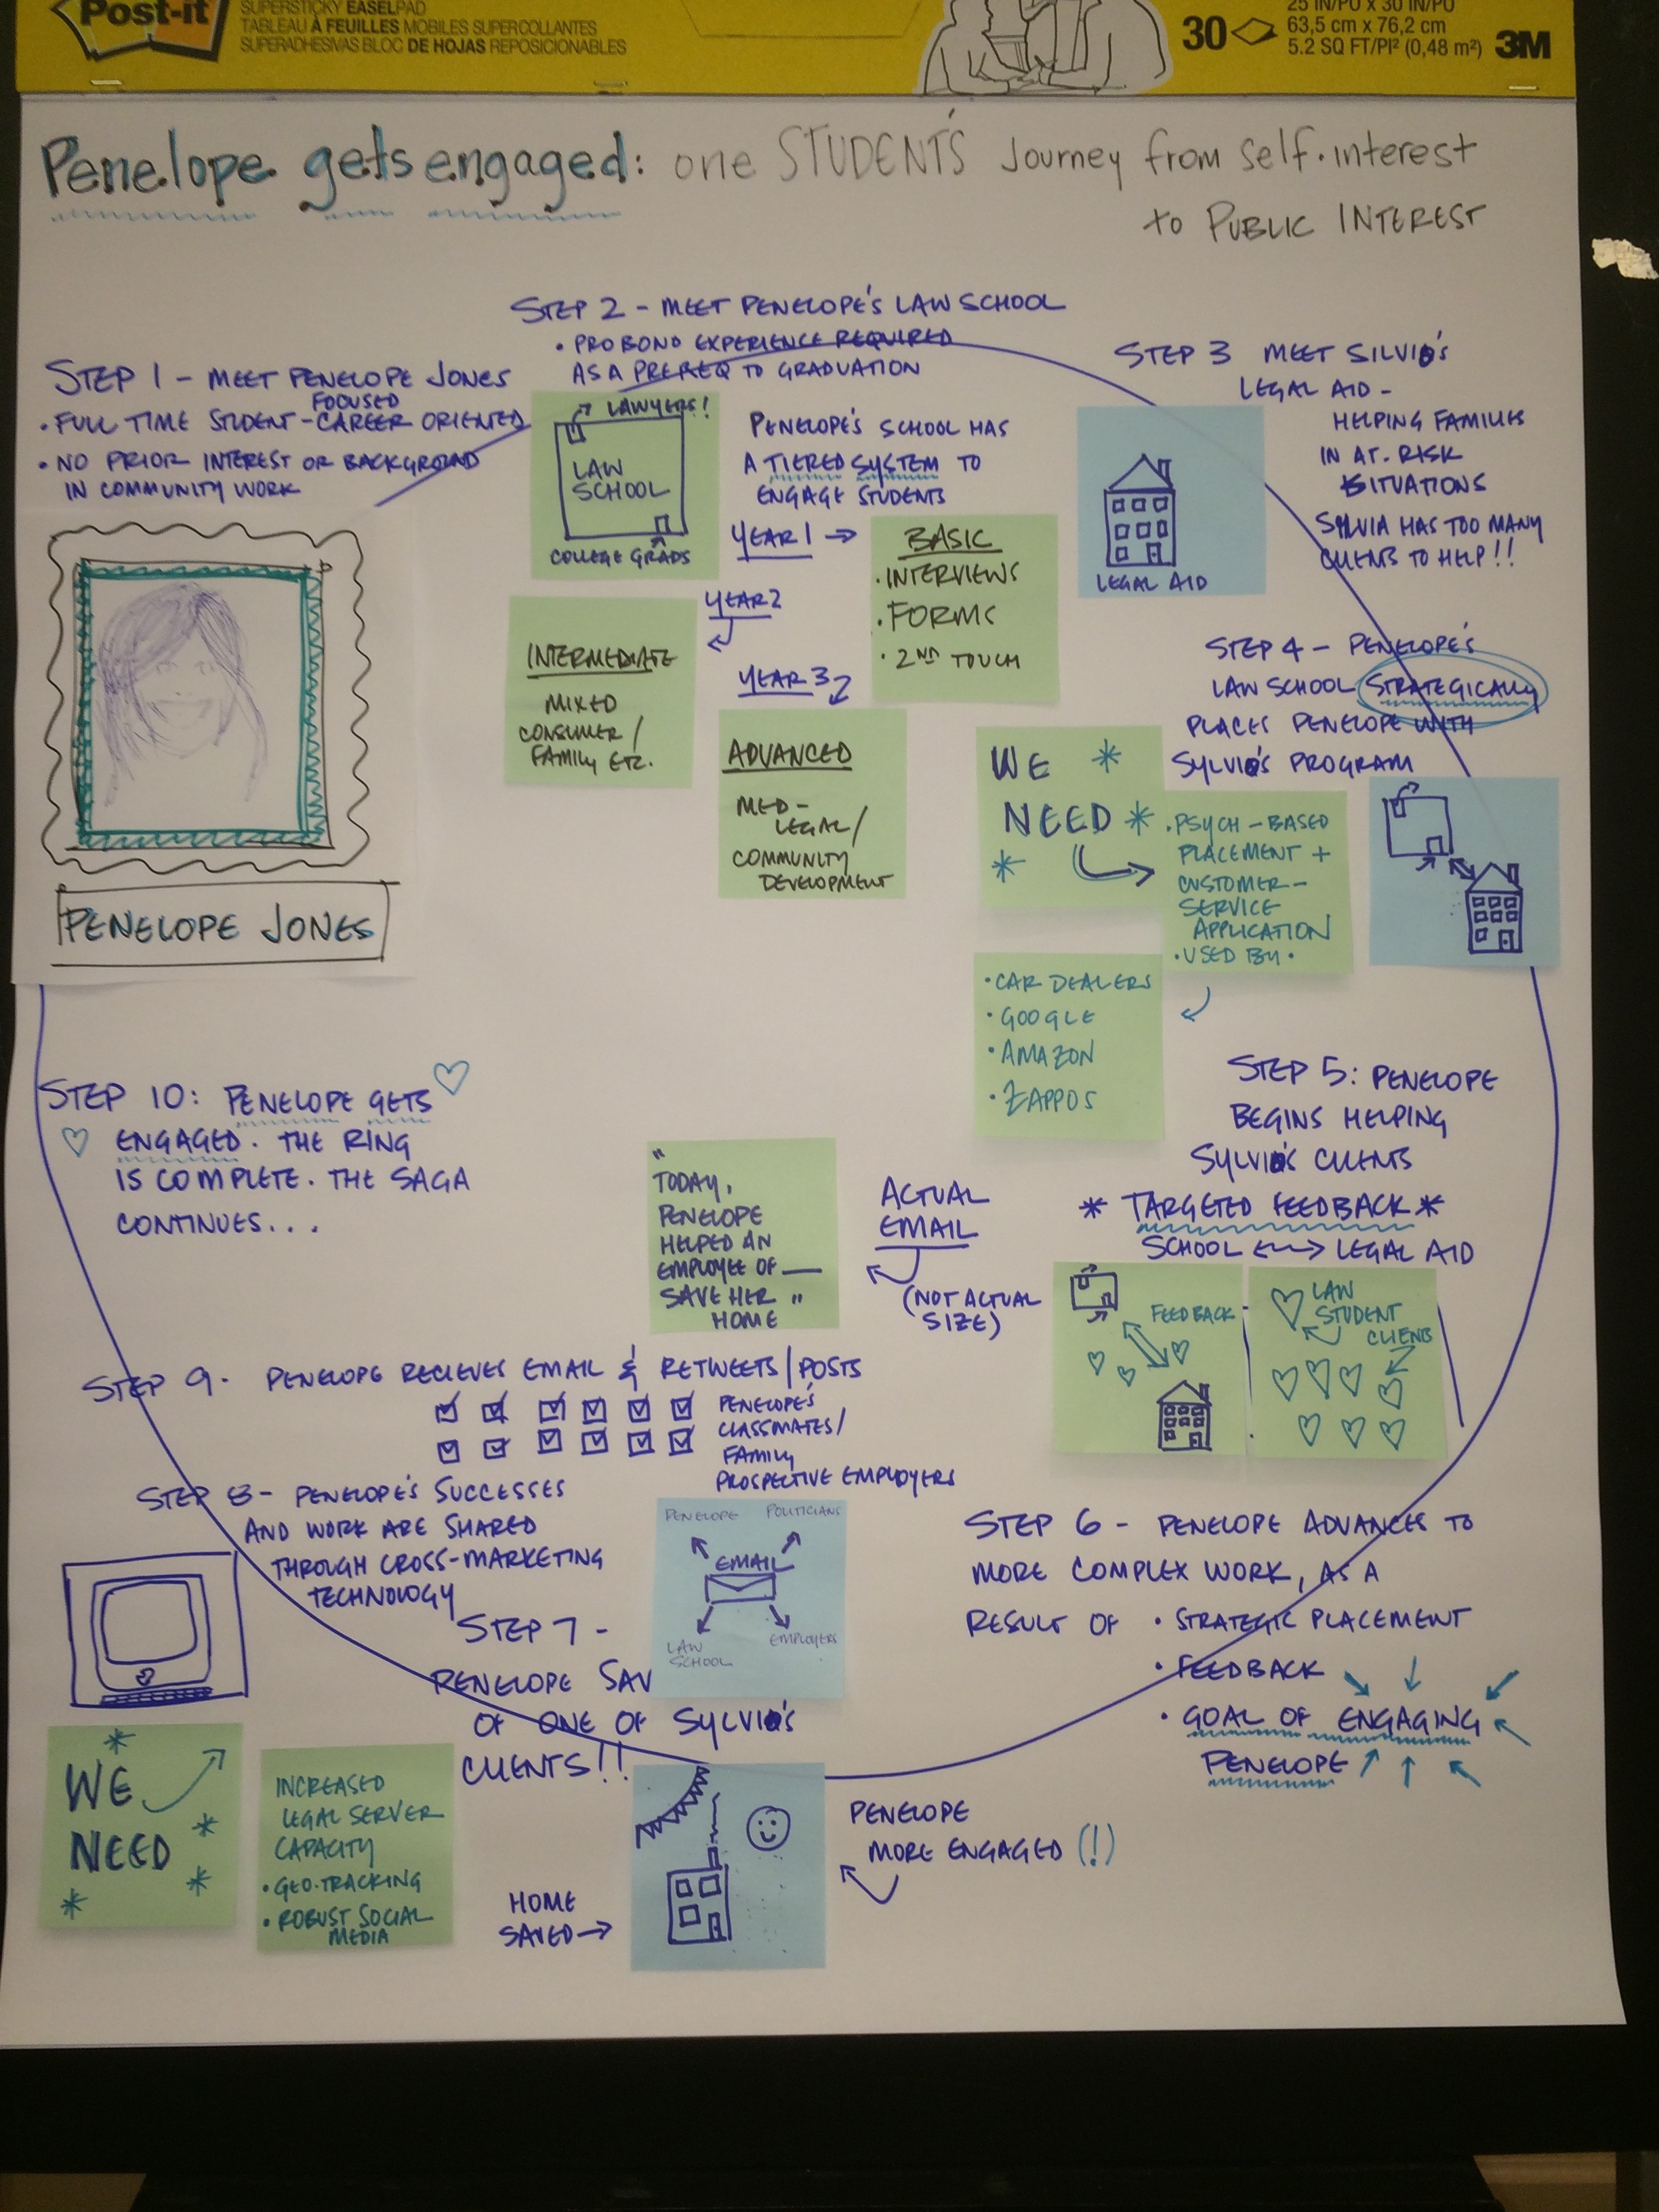 Post-it
SUPERSTICKY EASELPAD
TABLEAU À FEUILLES MOBILES SUPERCOLLANTES
SUPERADHESIVAS BLOC DE HOJAS REPOSICIONABLES
30
25 IN/PO x 30 IN/PO
63,5 cm x 76,2 cm
5.2 SQ FT/PI² (0,48 m²)
3M
Penelope gets engaged: one STUDENT'S Journey from self-interest
to PUBLIC INTEREST
STEP 1 - MEET PENELOPE JONES
FOCUSED
• FULL TIME STUDENT - CAREER ORIENTED
• NO PRIOR INTEREST OR BACKGROUND
IN COMMUNITY WORK
PENELOPE JONES
STEP 2 - MEET PENELOPE'S LAW SCHOOL
• PRO BONO EXPERIENCE REQUIRED
AS A PREREQ TO GRADUATION
LAWYERS!
LAW
SCHOOL
COLLEGE GRADS
PENELOPE'S SCHOOL HAS
A TIERED SYSTEM TO
ENGAGE STUDENTS
YEAR 1 →
BASIC
• INTERVIEWS
• FORMS
• 2ND TOUCH
YEAR 2
INTERMEDIATE
MIXED
CONSUMER /
FAMILY ETC.
YEAR 3
ADVANCED
MED-
LEGAL /
COMMUNITY
DEVELOPMENT
STEP 3 MEET SILVIA'S
LEGAL AID -
HELPING FAMILIES
IN AT-RISK
SITUATIONS
SYLVIA HAS TOO MANY
CLIENTS TO HELP!!
LEGAL AID
STEP 4 - PENELOPE'S
LAW SCHOOL STRATEGICALLY
PLACES PENELOPE WITH
SYLVIA'S PROGRAM
WE *
NEED *
*
• PSYCH-BASED
PLACEMENT +
CUSTOMER-
SERVICE
APPLICATION
• USED BY •
• CAR DEALERS
• GOOGLE
• AMAZON
• ZAPPOS
STEP 5: PENELOPE
BEGINS HELPING
SYLVIA'S CLIENTS
* TARGETED FEEDBACK *
SCHOOL <--> LEGAL AID
FEEDBACK
LAW
STUDENT
CLIENTS
STEP 6 - PENELOPE ADVANCES TO
MORE COMPLEX WORK, AS A
RESULT OF • STRATEGIC PLACEMENT
• FEEDBACK
• GOAL OF ENGAGING
PENELOPE
STEP 7 -
PENELOPE SAV
OF ONE OF SYLVIA'S
CLIENTS!!
HOME
SAVED →
PENELOPE
MORE ENGAGED (!)
STEP 8 - PENELOPE'S SUCCESSES
AND WORK ARE SHARED
THROUGH CROSS-MARKETING
TECHNOLOGY
PENELOPE POLITICIANS
EMAIL
LAW
SCHOOL
EMPLOYERS
*
WE
NEED *
* *
INCREASED
LEGAL SERVER
CAPACITY
• GEO-TRACKING
• ROBUST SOCIAL
MEDIA
STEP 9 - PENELOPE RECIEVES EMAIL & RETWEETS / POSTS
PENELOPE'S
CLASSMATES /
FAMILY
PROSPECTIVE EMPLOYERS
"
TODAY,
PENELOPE
HELPED AN
EMPLOYEE OF ___
SAVE HER "
HOME
ACTUAL
EMAIL
(NOT ACTUAL
SIZE)
STEP 10: PENELOPE GETS
ENGAGED. THE RING
IS COMPLETE. THE SAGA
CONTINUES...